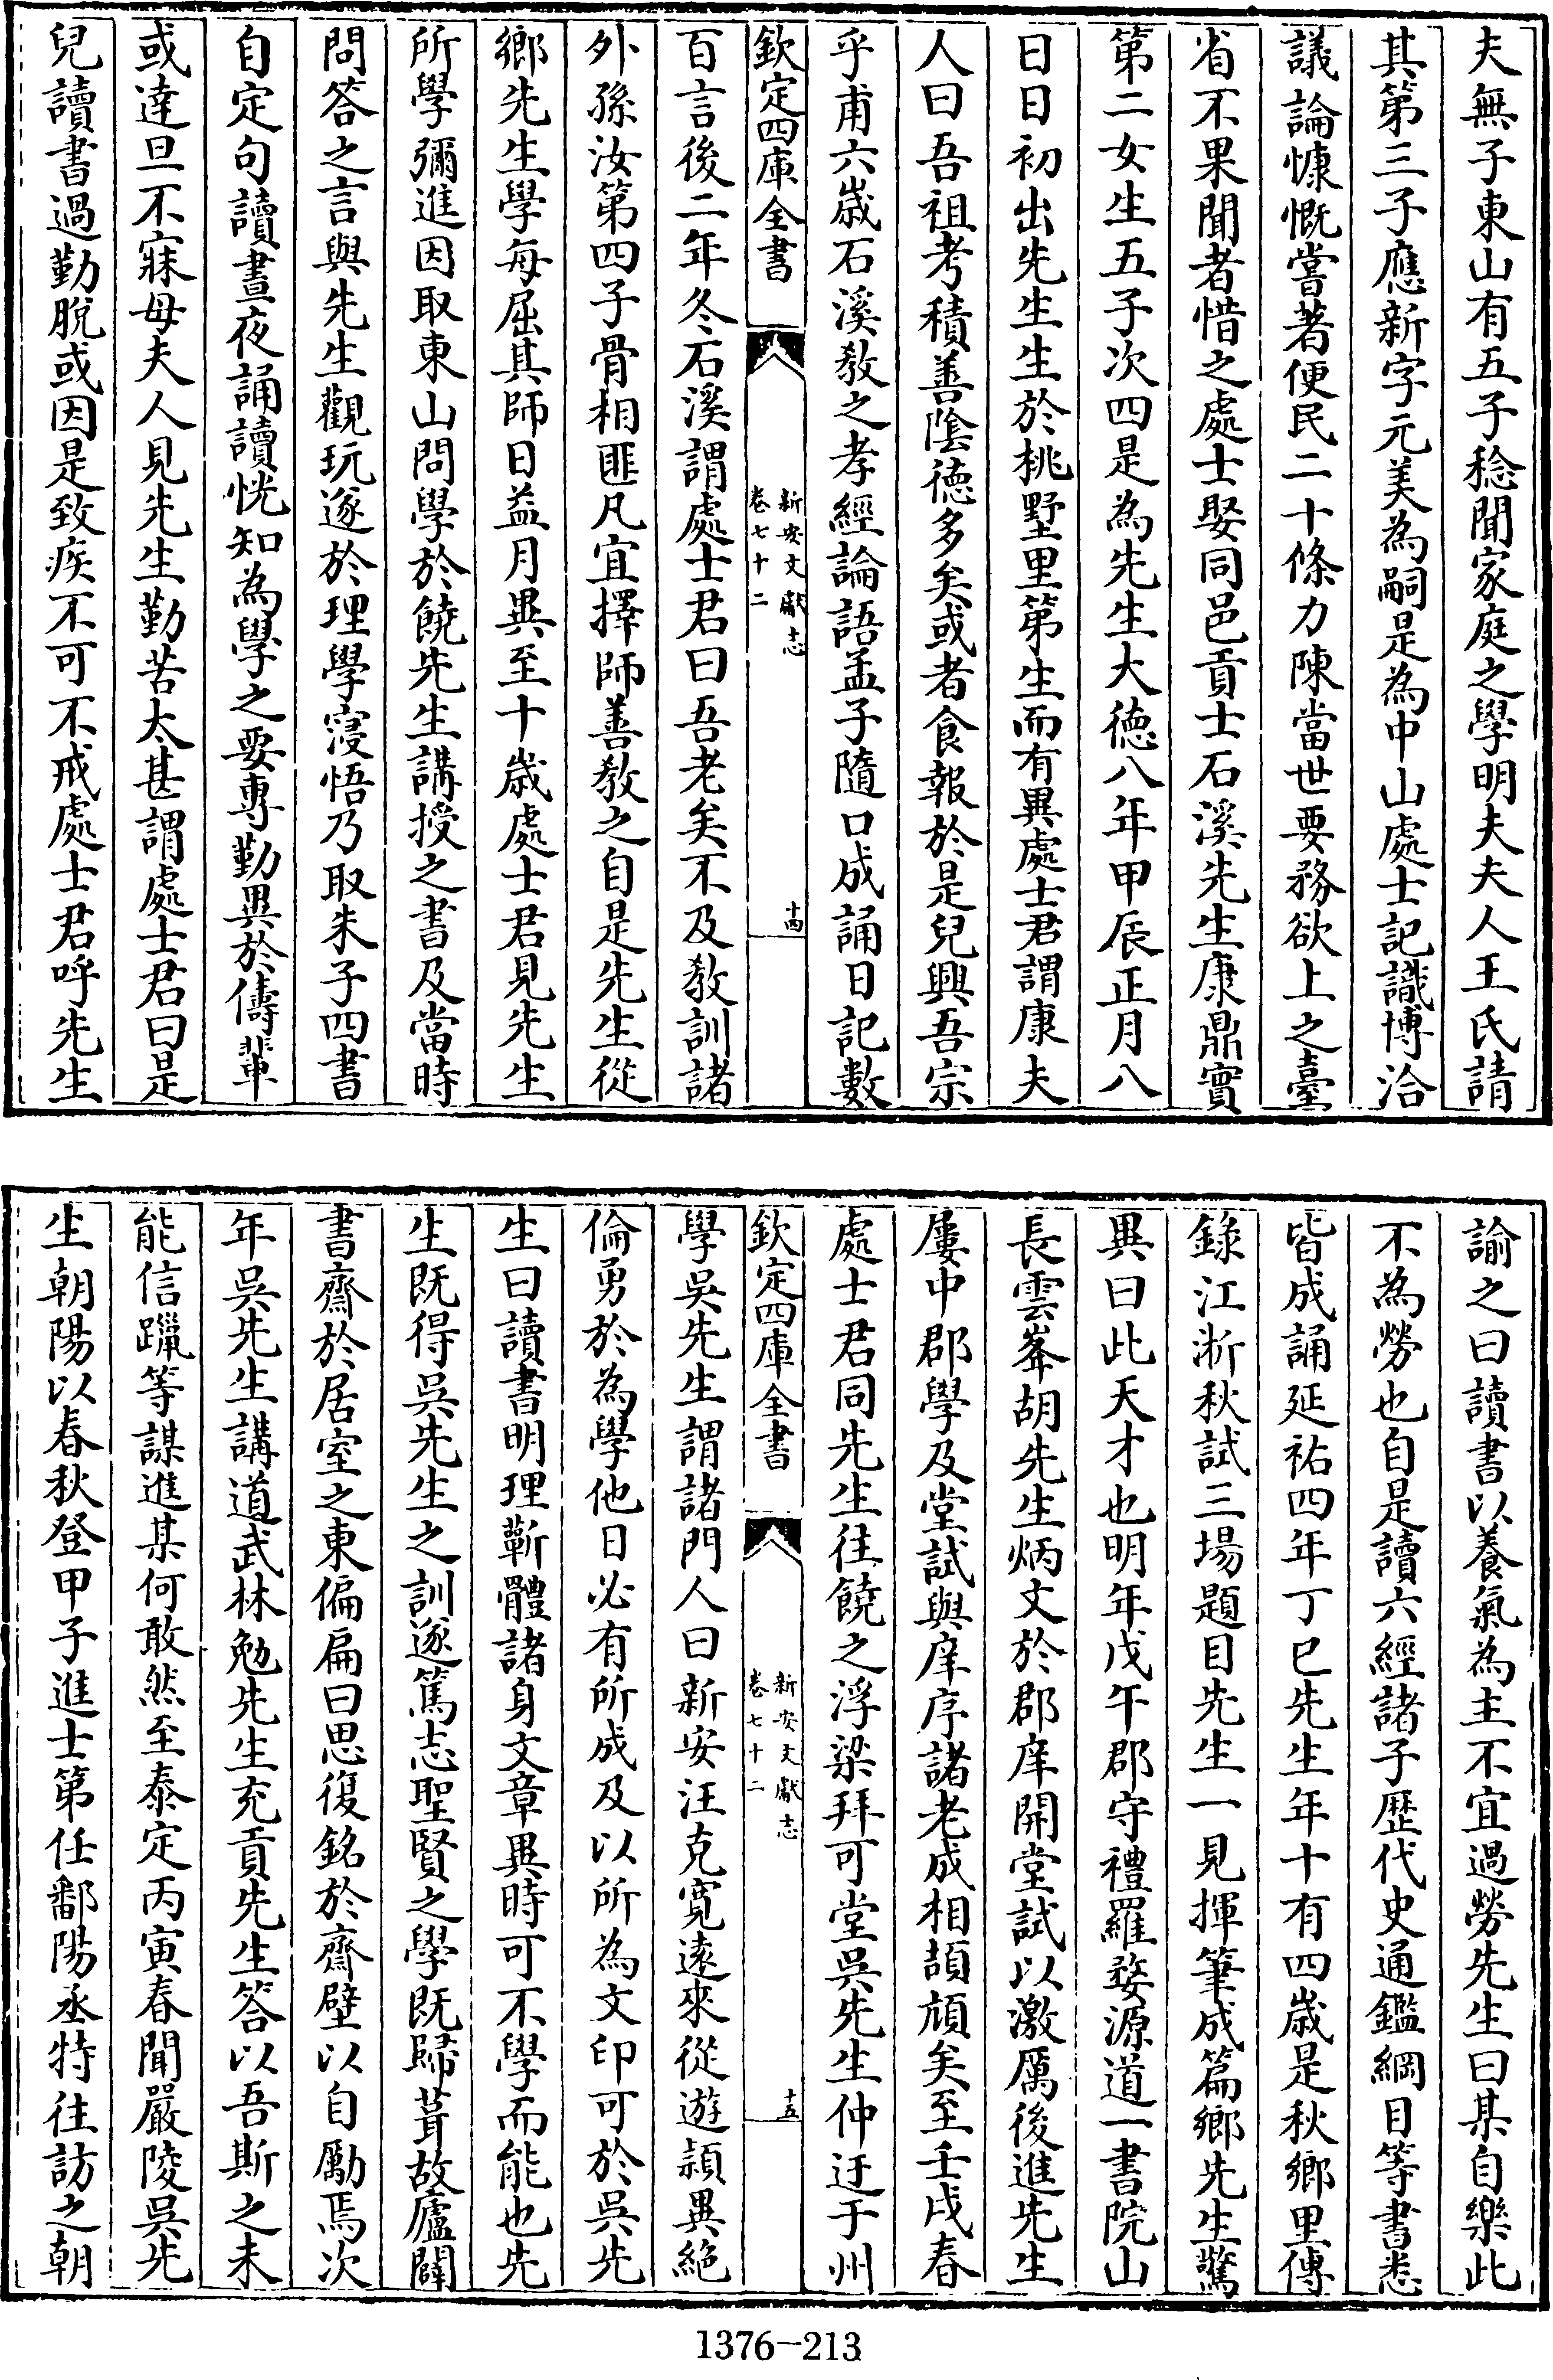 夫無子東山有五子稔聞家庭之學明夫夫人王氏請
其第三子應新字元美為嗣是為中山處士記識博洽
議論慷慨嘗著便民二十條力陳當世要務欲上之臺
省不果聞者惜之處士娶同邑貢士石溪先生康鼎實
第二女生五子次四是為先生大德八年甲辰正月八
日日初出先生生於桃墅里第生而有異處士君謂康夫
人曰吾祖考積善陰德多矣或者食報於是兒興吾宗
乎甫六歲石溪教之孝經論語孟子隨口成誦日記數
欽定四庫全書
新安文獻志
卷七十二
十四
百言後二年冬石溪謂處士君曰吾老矣不及教訓諸
外孫汝第四子骨相匪凡宜擇師善教之自是先生從
鄉先生學每屈其師日益月異至十歲處士君見先生
所學彌進因取東山問學於饒先生講授之書及當時
問答之言與先生觀玩遂於理學寖悟乃取朱子四書
自定句讀晝夜誦讀恍知為學之要專勤異於儔輩
或達旦不寐母夫人見先生勤苦太甚謂處士君曰是
兒讀書過勤脫或因是致疾不可不戒處士君呼先生
諭之曰讀書以養氣為主不宜過勞先生曰某自樂此
不為勞也自是讀六經諸子歷代史通鑑綱目等書悉
皆成誦延祐四年丁巳先生年十有四歲是秋鄉里傳
錄江浙秋試三場題目先生一見揮筆成篇鄉先生驚
異曰此天才也明年戊午郡守禮羅婺源道一書院山
長雲峯胡先生炳文於郡庠開堂試以激厲後進先生
屢中郡學及堂試與庠序諸老成相頡頏矣至壬戌春
處士君同先生往饒之浮梁拜可堂吳先生仲迂于州
欽定四庫全書
新安文獻志
卷七十二
十五
學吳先生謂諸門人曰新安汪克寬遠來從遊穎異絕
倫勇於為學他日必有所成及以所為文印可於吳先
生曰讀書明理蘄體諸身文章異時可不學而能也先
生既得吳先生之訓遂篤志聖賢之學既歸葺故廬闢
書齋於居室之東偏扁曰思復銘於齋壁以自勵焉次
年吳先生講道武林勉先生充貢先生答以吾斯之未
能信躐等謀進某何敢然至泰定丙寅春聞嚴陵吳先
生朝陽以春秋登甲子進士第任鄱陽丞特往訪之朝
1376-213